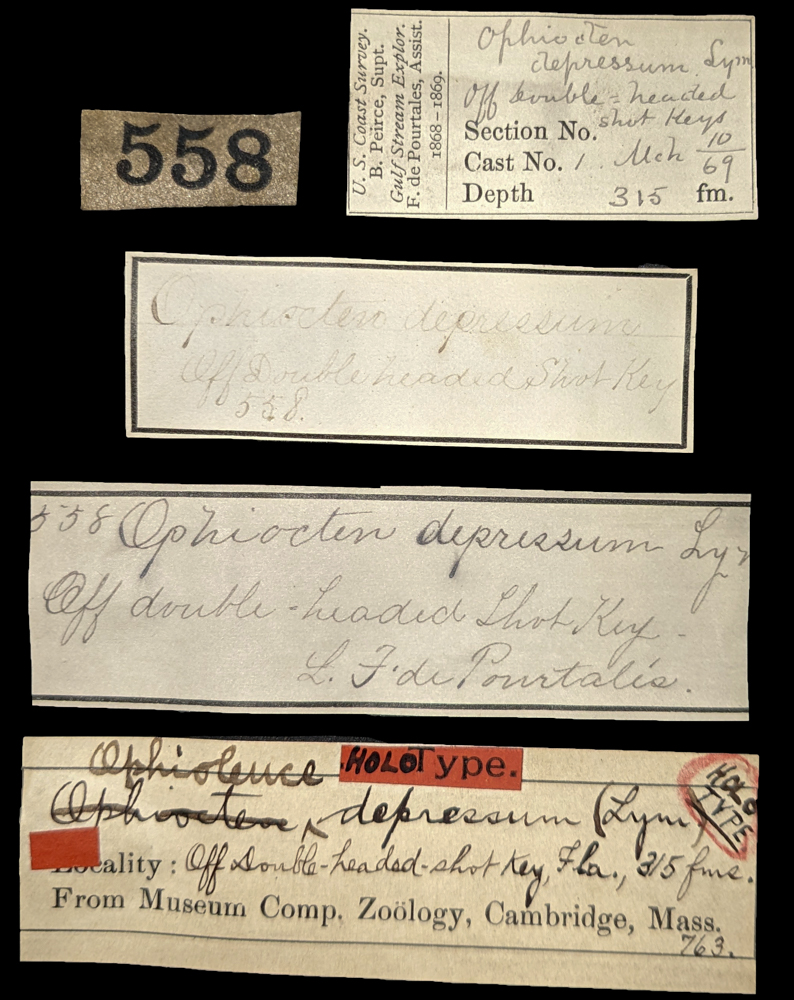 558
U. S. Coast Survey.
B. Peirce, Supt.
Gulf Stream Explor.
F. de Pourtales, Assist.
1868–1869.
Ophiocten
depressum Lym
Off double-headed
shot Keys
Section No.
Cast No. 1. Mch 10/69
Depth 315 fm.
Ophiocten depressum
Off Double headed Shot Key
558.
558 Ophiocten depressum Ly
Off double-headed Shot Key -
L. F. de Pourtalès.
Ophioleuce HOLOType.
Ophiocten, depressum (Lym)
HOLO
TYPE
Locality: Off Double-headed-shot Key, Fla., 315 fms.
From Museum Comp. Zoölogy, Cambridge, Mass.
763.